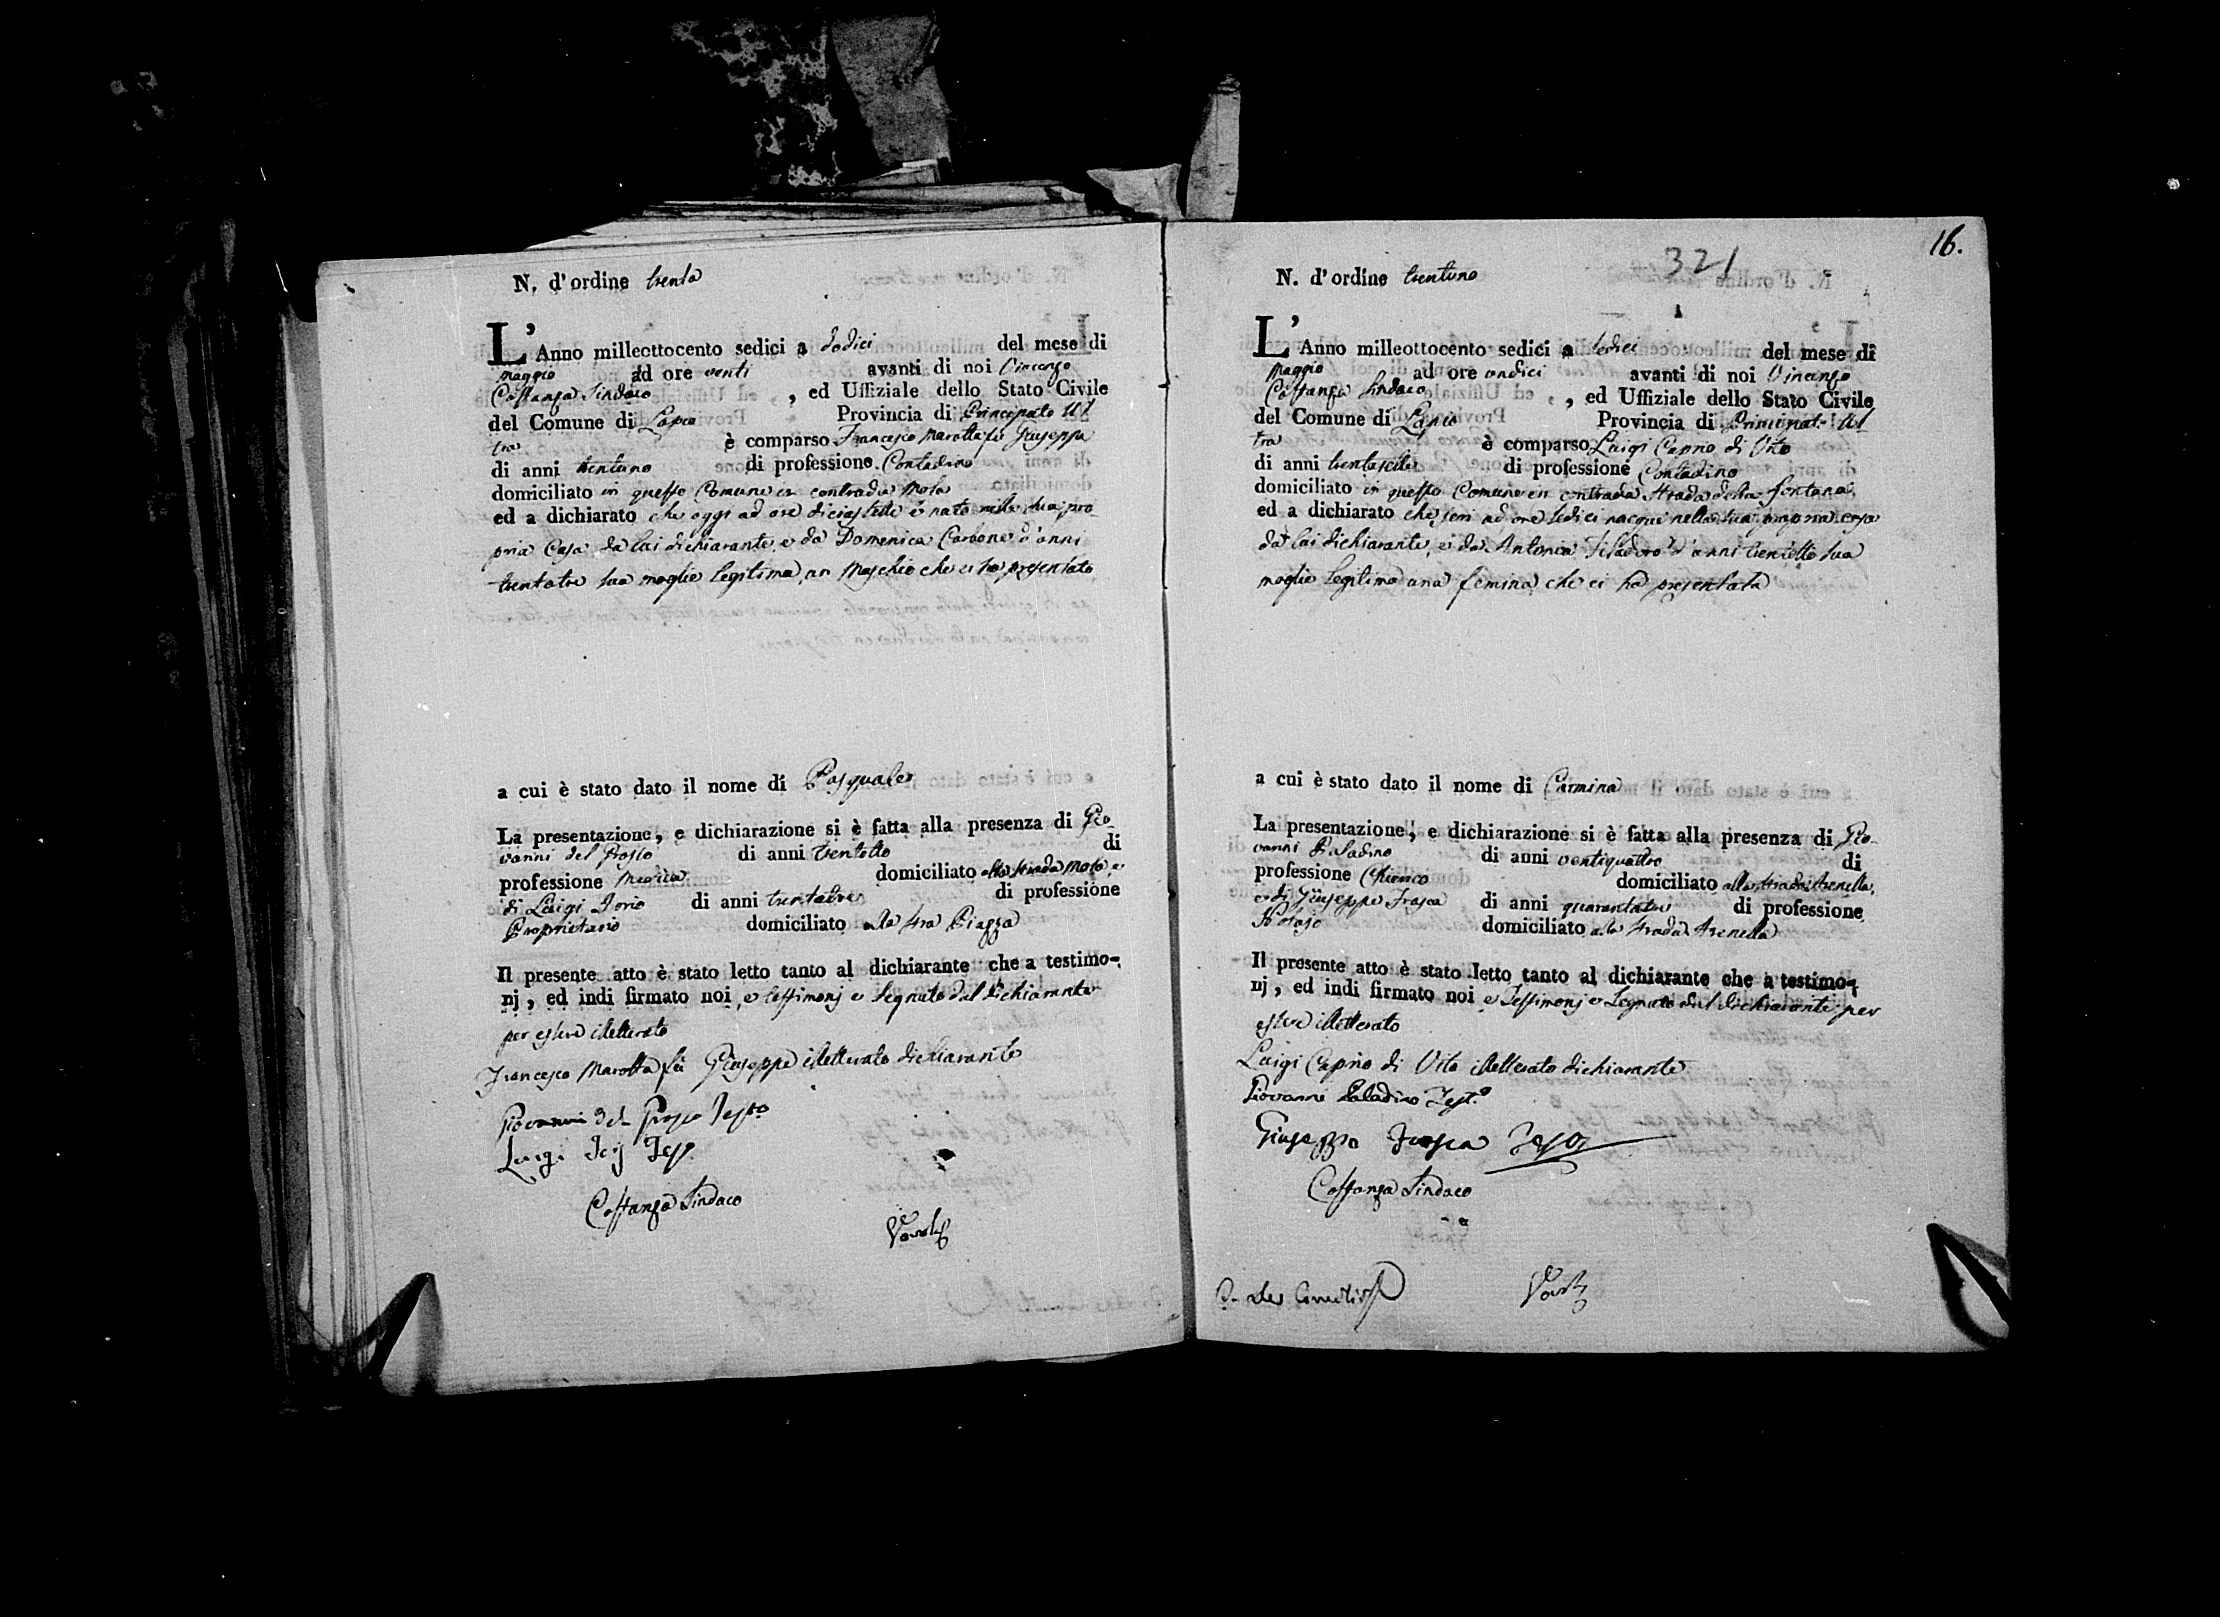 N. d'ordine trenta
L'Anno milleottocento sedici a dodici del mese di
maggio ad ore venti avanti di noi Vincenzo
Costanza Sindaco , ed Uffiziale dello Stato Civile
del Comune di Lapio Provincia di Principato Ul
tra è comparso Francesco Marotta fù Giuseppe
di anni trentuno di professione Contadino
domiciliato in questo Comune in contrada Mola
ed a dichiarato che oggi ad ore diciassette è nato nella sua pro
pria Casa da lui dichiarante, e da Domenica Carbone d'anni
trentatre sua moglie legitima un Maschio che ci ha presentato
a cui è stato dato il nome di Pasquale
La presentazione, e dichiarazione si è fatta alla presenza di Gio
vanni del Grosso di anni trentotto di
professione Medico domiciliato alla strada Mola, e
di Luigi Iorio di anni trentatre di professione
Proprietario domiciliato alla stra Piazza
Il presente atto è stato letto tanto al dichiarante che a testimo-
nj, ed indi firmato noi e testimonj e segnato dal dichiarante
per essere illetterato
Francesco Marotta fù Giuseppe illetterato dichiarante
Giovanni del Grosso Testo
Luigi Test
Costanza Sindaco
16.
321
N. d'ordine trentuno
L'Anno milleottocento sedici a sedici del mese di
Maggio ad ore undici avanti di noi Vincenzo
Costanza Sindaco , ed Uffiziale dello Stato Civile
del Comune di Lapio Provincia di Principato Ul
tra è comparso Luigi Caprio di Vito
di anni trentasette di professione Contadino
domiciliato in questo Comune in contrada Strada della fontana
ed a dichiarato che jeri ad ore sedici nacque nella sua propria casa
da lui dichiarante, e da Antonia d'anni trentotto sua
moglie legitima una femina che ci ha presentata
a cui è stato dato il nome di Carmina
La presentazione, e dichiarazione si è fatta alla presenza di Gio
vanni Paladino di anni ventiquattro di
professione domiciliato alla strada Arenella,
e di Giuseppe Frasca di anni quarantatre di professione
Notajo domiciliato alla strada Arenella
Il presente atto è stato letto tanto al dichiarante che a testimo-
nj, ed indi firmato noi e Testimonj e Segnato dal dichiarante per
essere illetterato
Luigi Caprio di Vito illetterato dichiarante
Giovanni Paladino Test.o
Giuseppe Frasca Testo
Costanza Sindaco